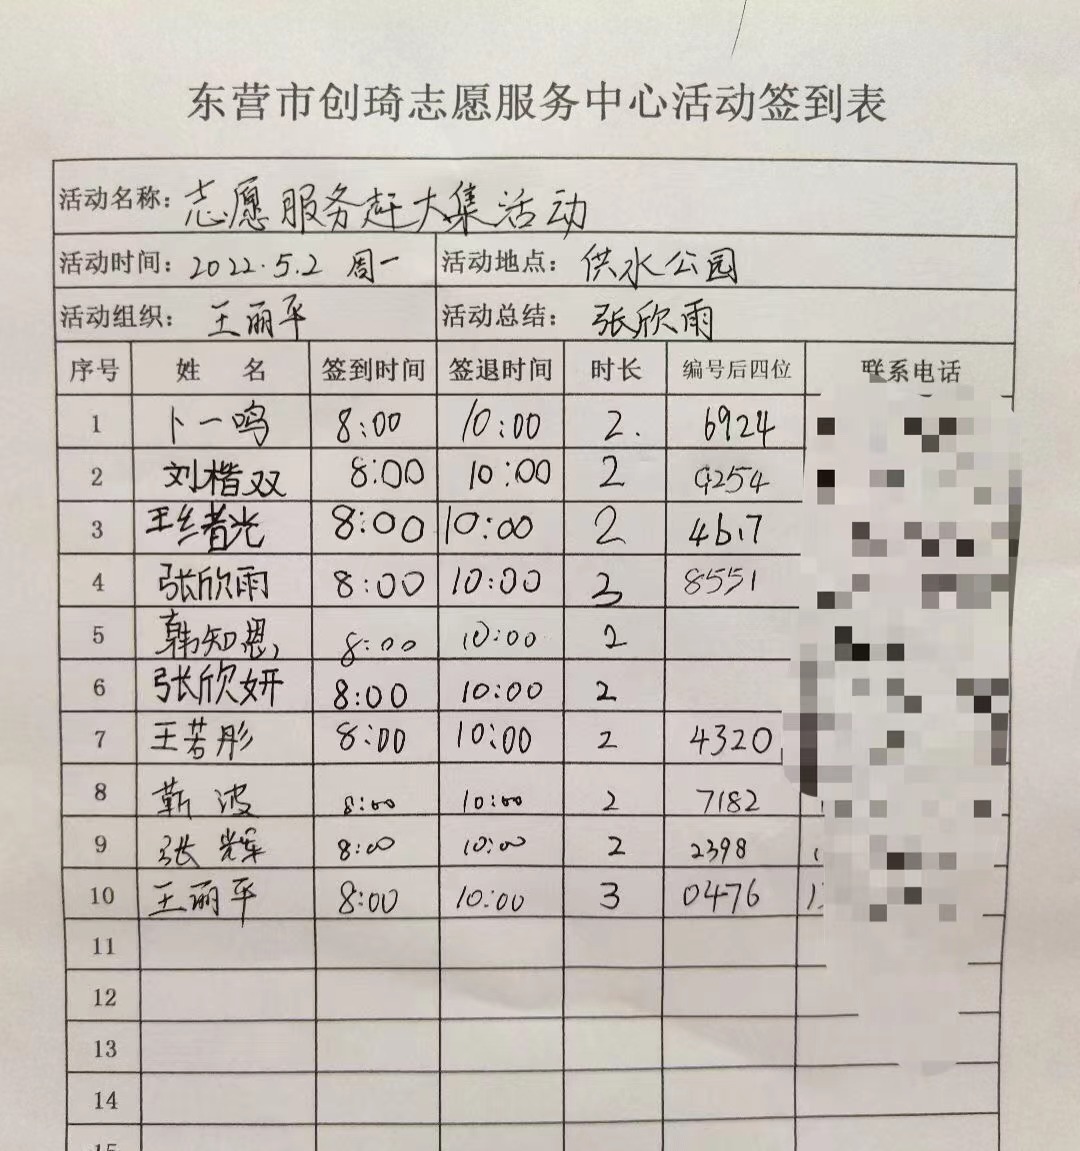 东营市创琦志愿服务中心活动签到表
活动名称: 志愿服务赶大集活动
活动时间: 2022.5.2 周一 活动地点: 供水公园
活动组织: 王丽平 活动总结: 张欣雨
序号 姓名 签到时间 签退时间 时长 编号后四位 联系电话
1 卜一鸣 8:00 10:00 2. 6924
2 刘楷双 8:00 10:00 2 9254
3 王绪光 8:00 10:00 2 4617
4 张欣雨 8:00 10:00 3 8551
5 韩知恩 8:00 10:00 2
6 张欣妍 8:00 10:00 2
7 王若彤 8:00 10:00 2 4320
8 靳波 8:00 10:00 2 7182
9 张辉 8:00 10:00 2 2398
10 王丽平 8:00 10:00 3 0476
11
12
13
14
15